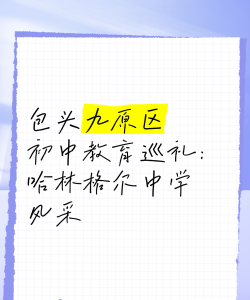 包头九原区
初中教育巡礼：
哈林格尔中学
风采